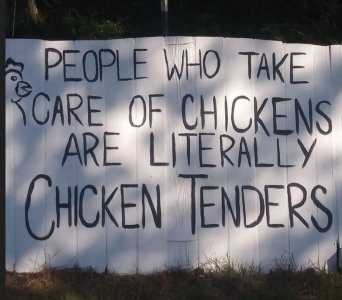 PEOPLE WHO TAKE
CARE OF CHICKENS
ARE LITERALLY
CHICKEN TENDERS